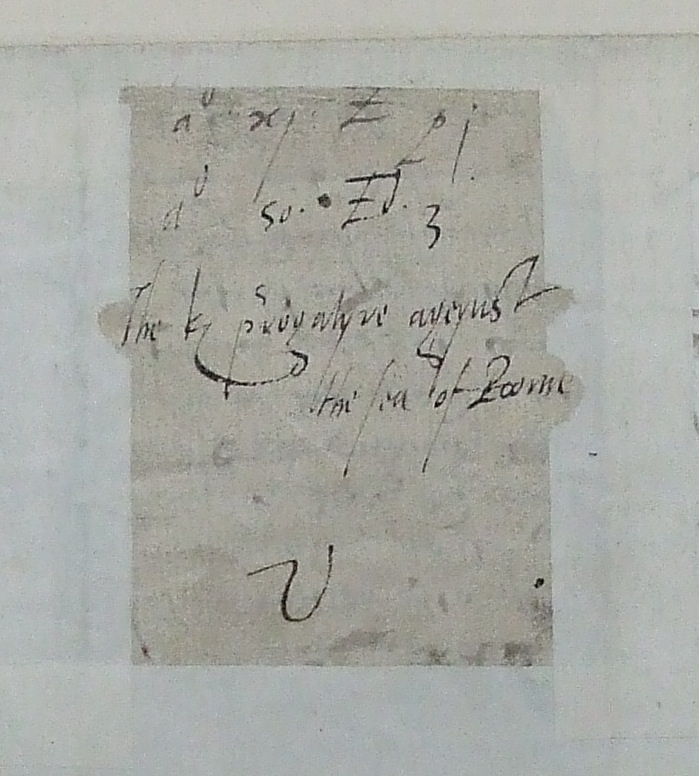 aº xj. E p j.
aº 50. Ed. 3
The kꝭ prrogatyve ageynst
the sea of Roome
V